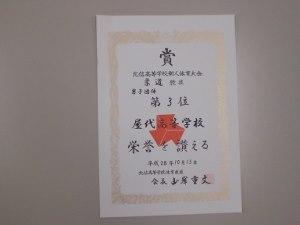 賞
北信高等学校新人体育大会
柔道競技
男子団体
第3位
屋代高等学校
栄誉を讃える
平成28年10月13日
北信高等学校体育連盟
会長